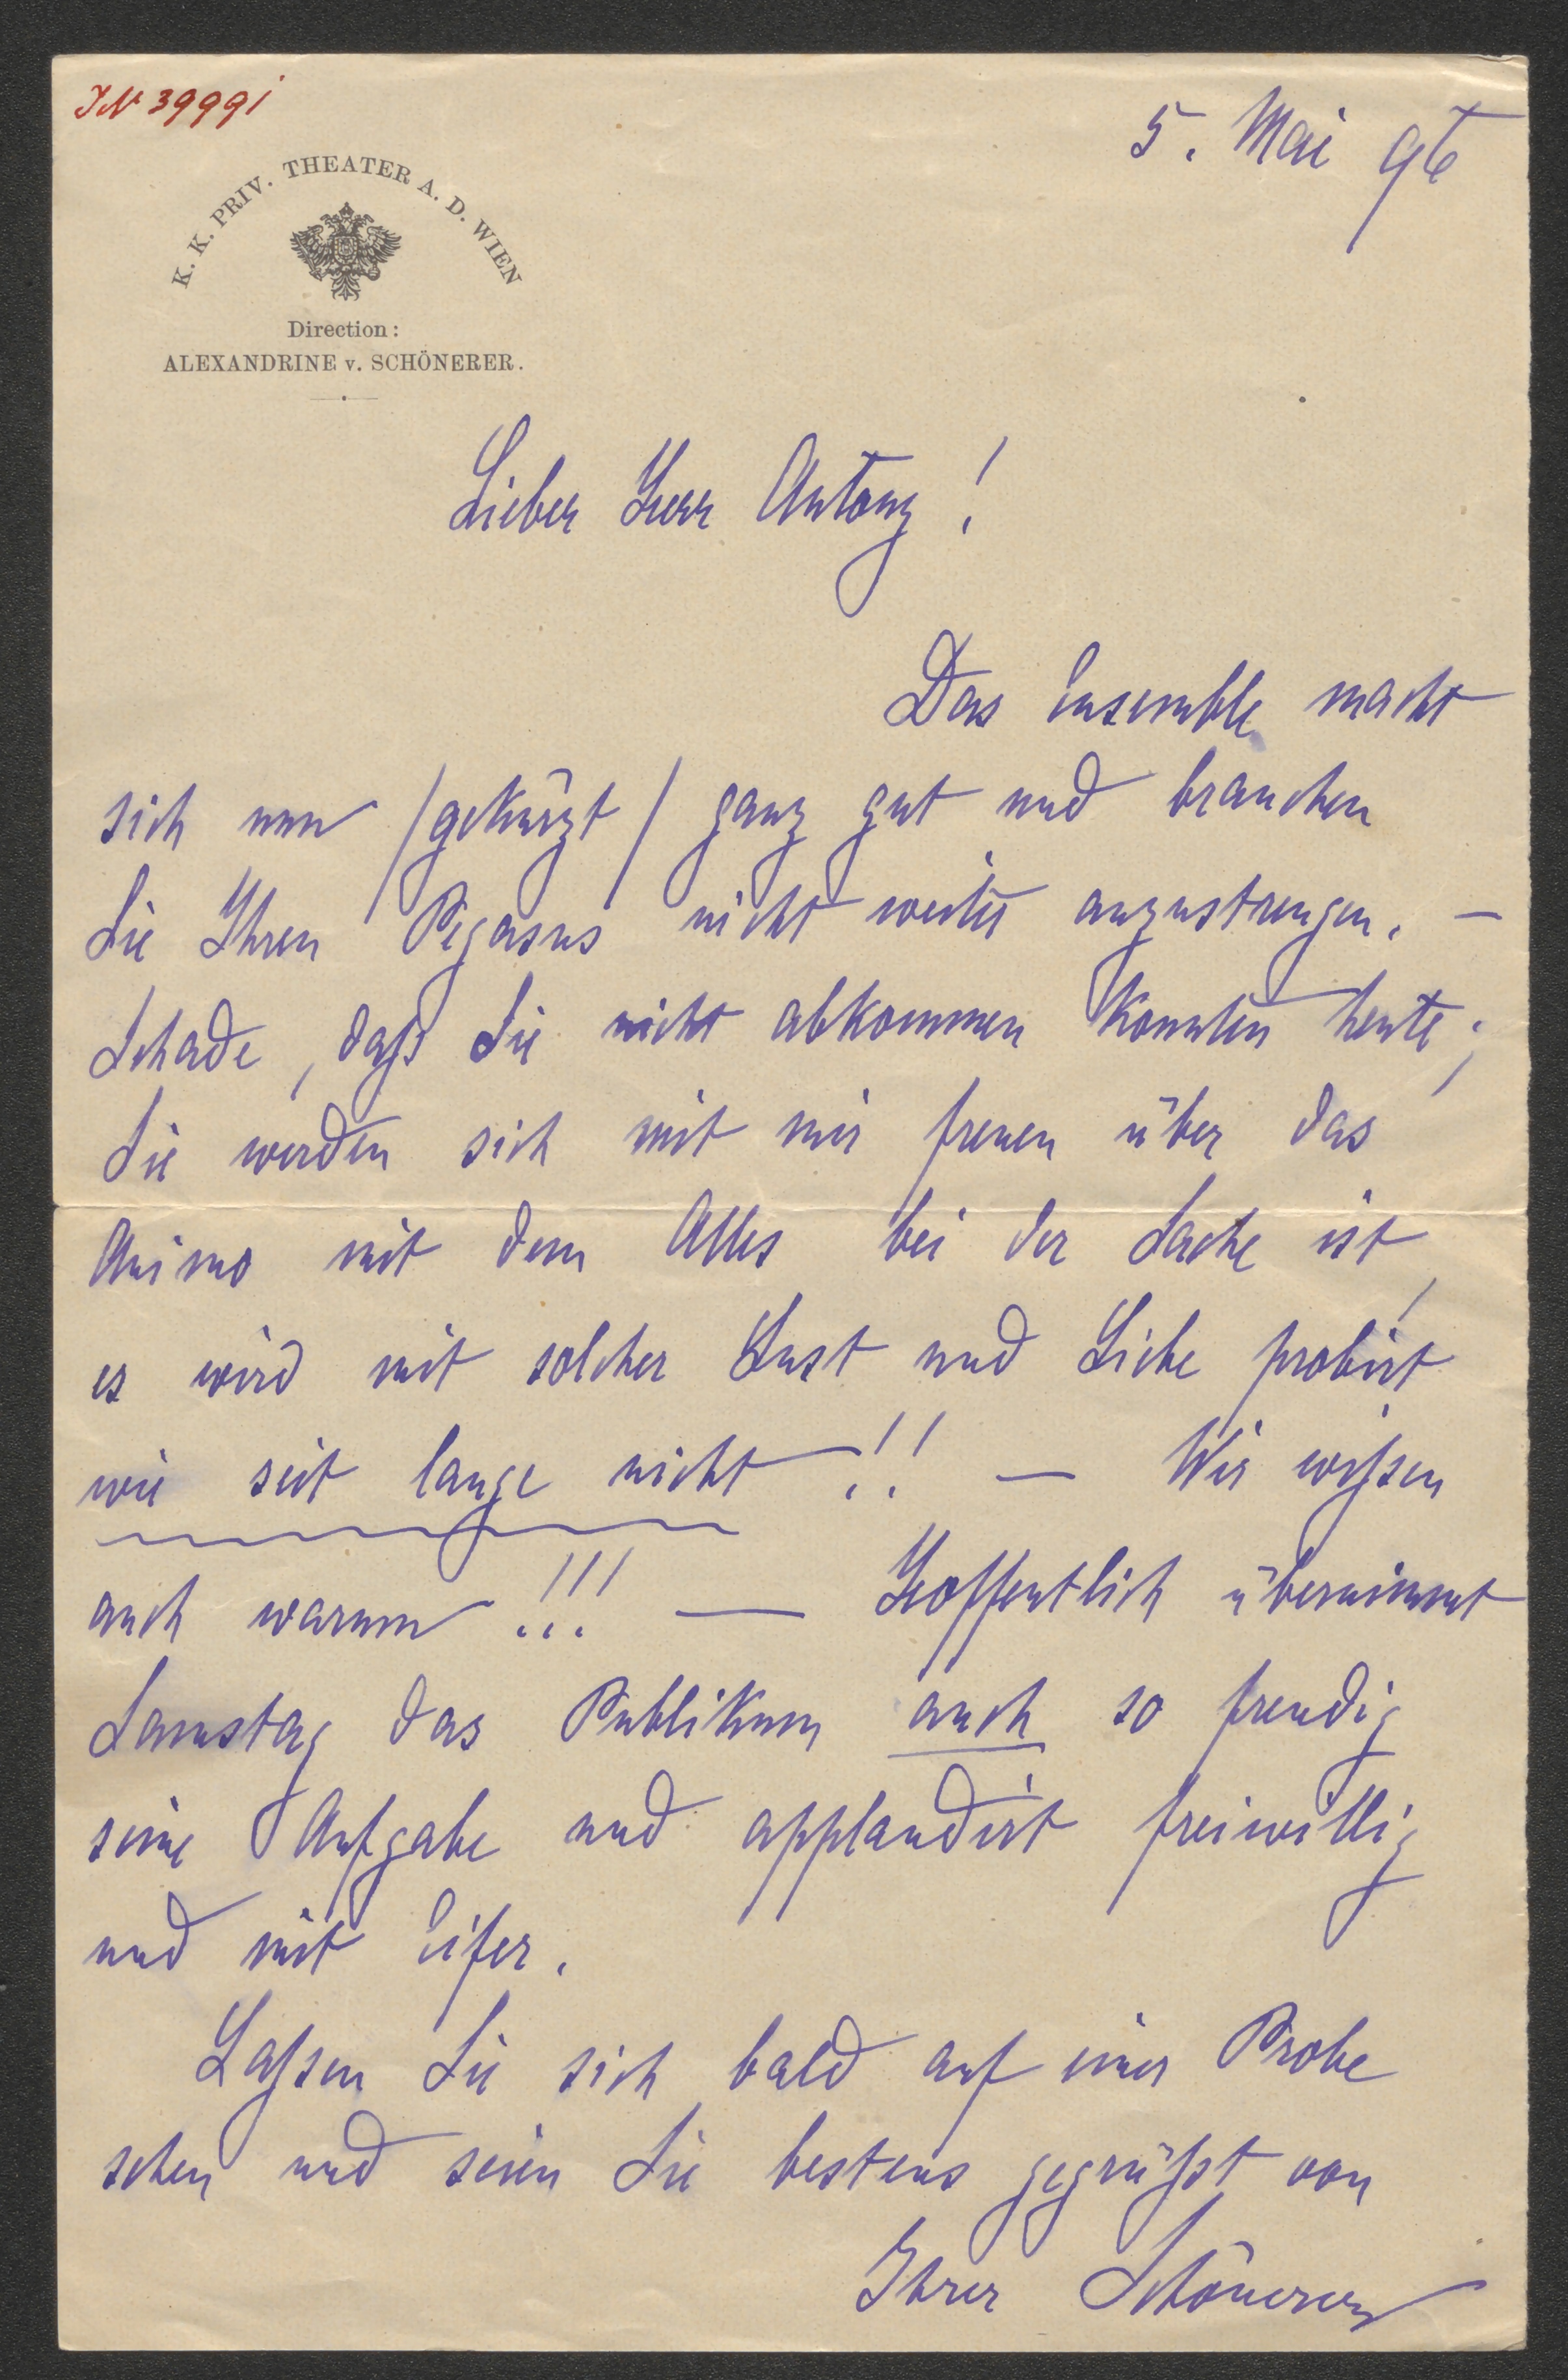 IN 39991
5. Mai 96
K. K. PRIV. THEATER A. D. WIEN
Direction:
ALEXANDRINE v. SCHÖNERER.
Lieber Herr Antony!
Das Ensemble macht
sich nun /gekürzt/ ganz gut und brauchen
Sie Ihren Pegasus nicht weiter anzustrengen. —
Schade, daß Sie nicht abkommen konnten heute;
Sie werden sich mit mir freuen über das
Animo mit dem Alles bei der Sache ist,
es wird mit solcher Lust und Liebe probirt
wie seit lange nicht!! — Wir wißsen
auch warum!!! — Hoffentlich übernimmt
Samstag das Publikum auch so freudig
seine Aufgabe und applaudirt freiwillig
und mit Eifer.
Laßsen Sie sich bald auf einer Probe
sehen und seien Sie bestens gegrüßt von
Ihrer Schönerer